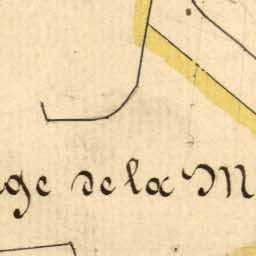 ge de la M